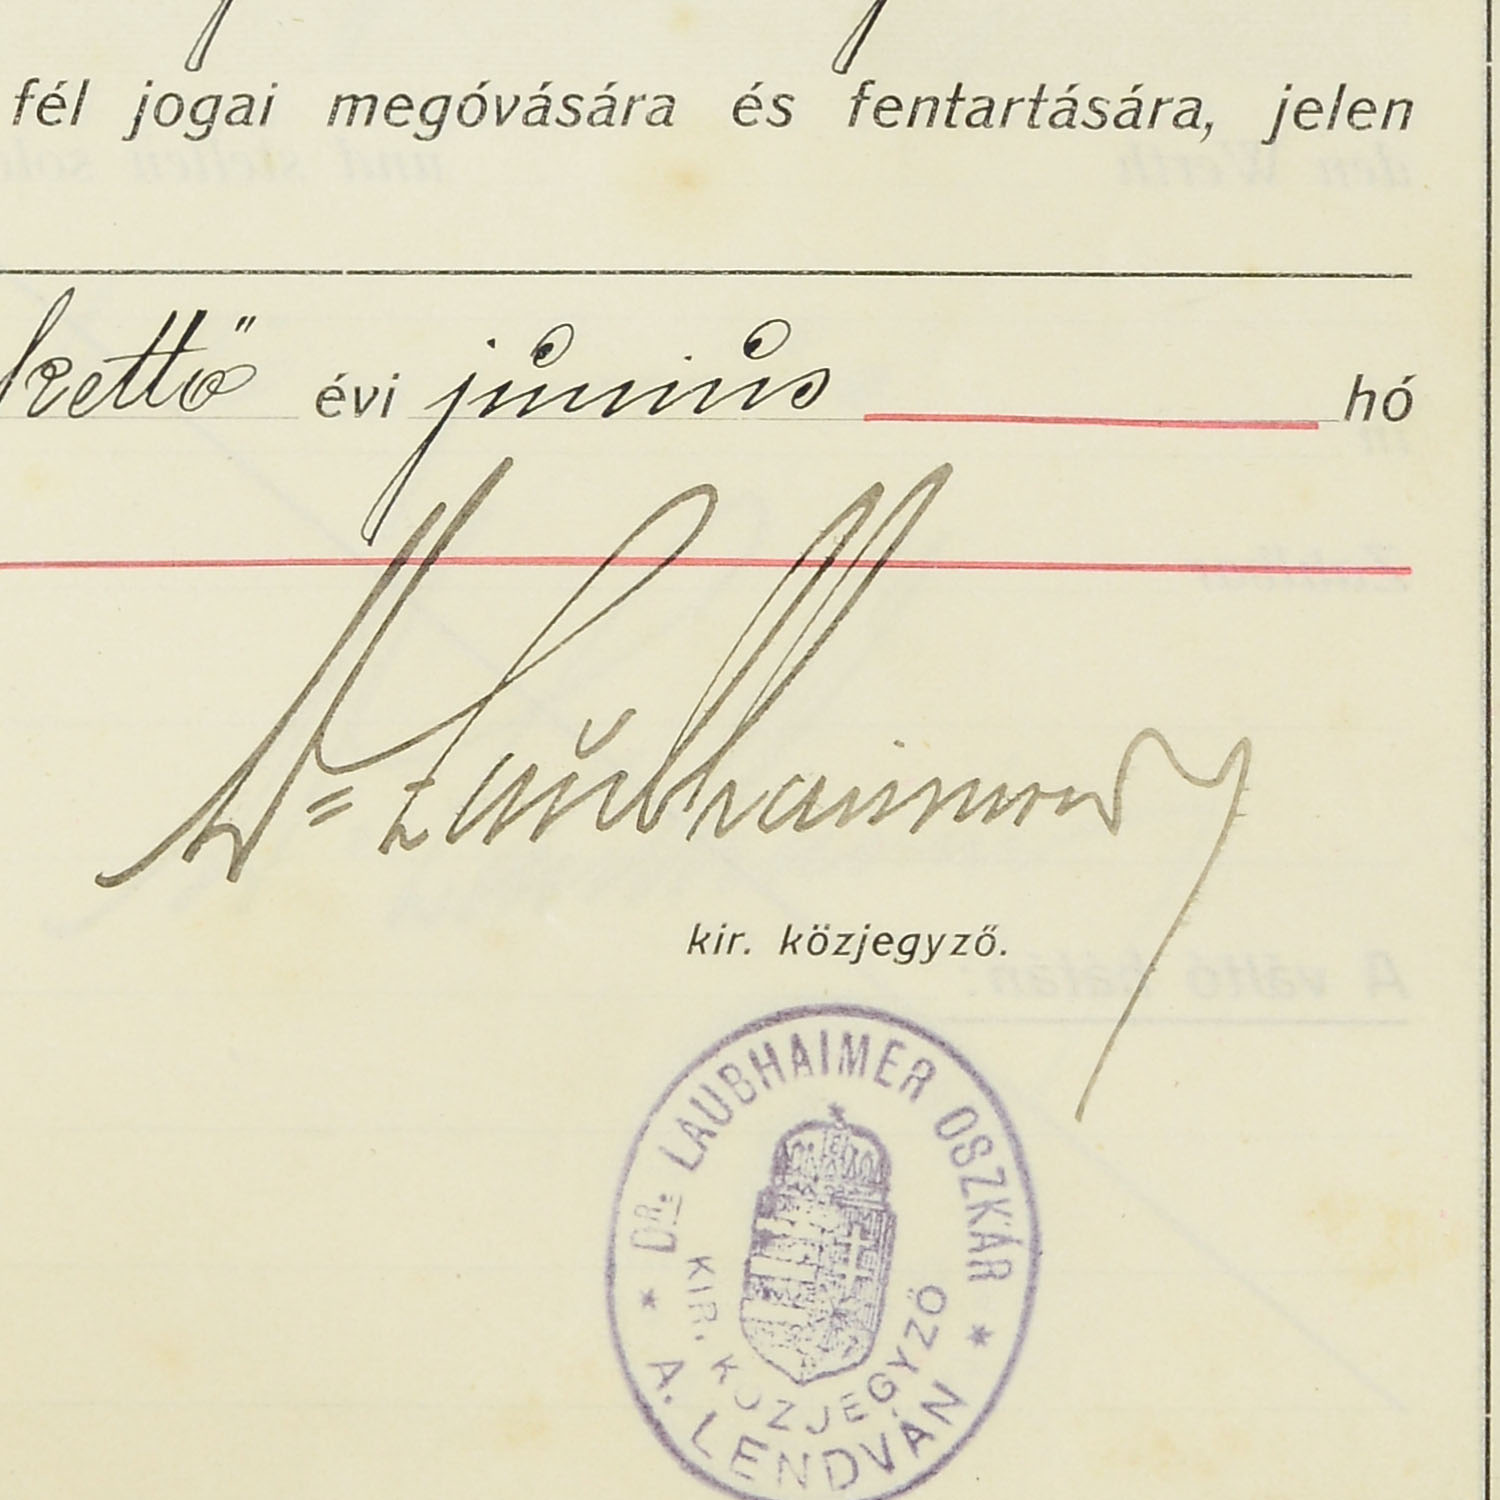 fél jogai megóvására és fentartására, jelen
kettő évi június hó
Dr Laubhaimer
kir. közjegyző.
DR. LAUBHAIMER OSZKÁR
KIR. KÖZJEGYZŐ
A. LENDVÁN